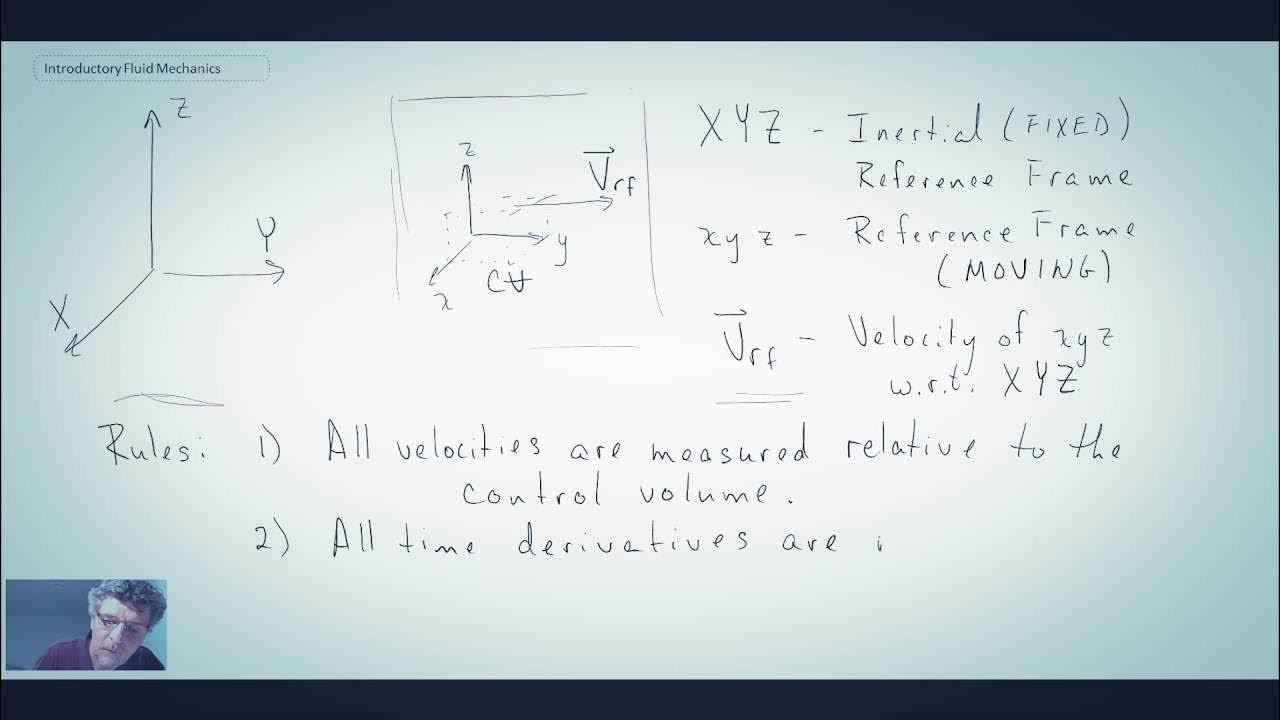 Introductory Fluid Mechanics
Z
Y
X
z
V⃗rf
y
x
C∀
XYZ - Inertial (FIXED)
Reference Frame
xyz - Reference Frame
(MOVING)
V⃗rf - Velocity of xyz
w.r.t. XYZ
Rules: 1) All velocities are measured relative to the
control volume.
2) All time derivatives are i